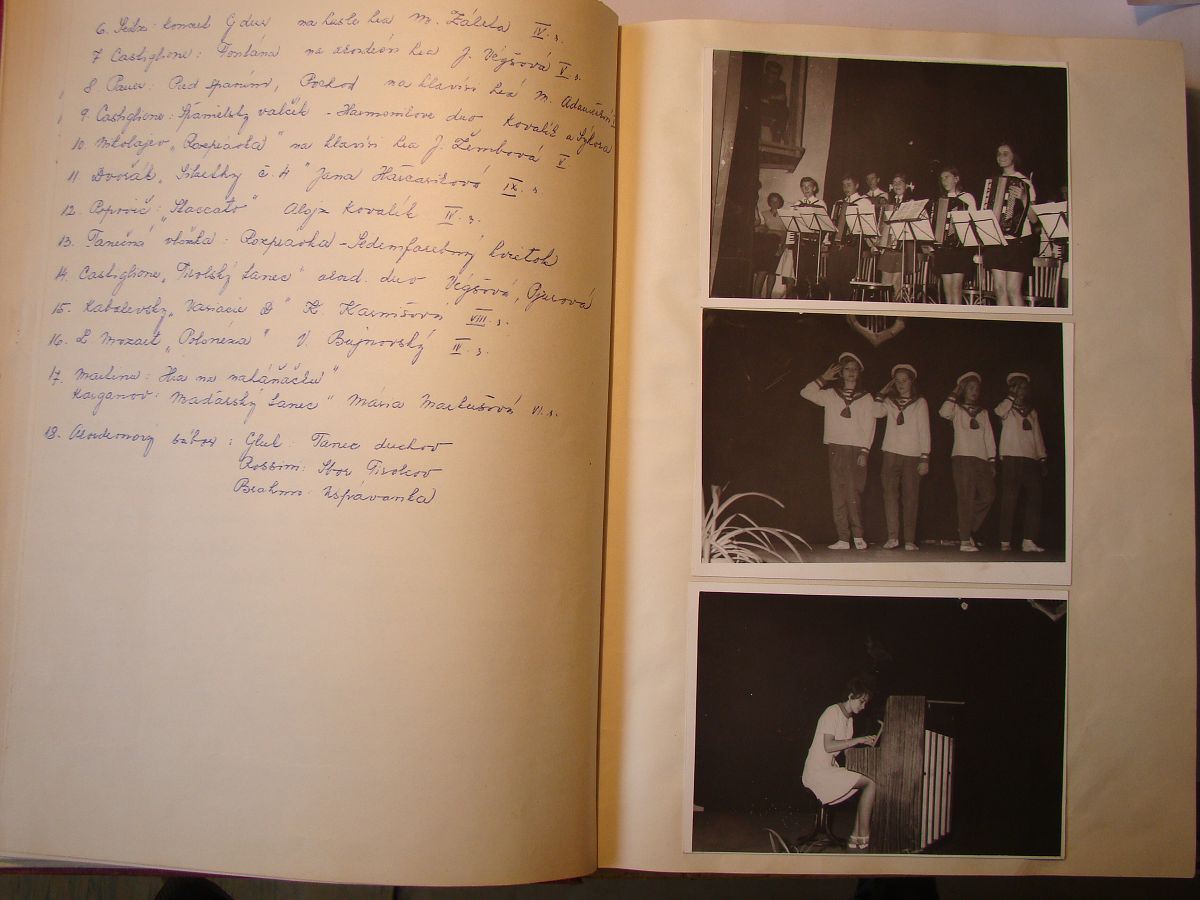 6. Seitz: koncert G dur na husle hrá M. Záleta IV. r.
7. Castiglione: Fontána na akordeón hrá J. Végšová V. r.
8. Pauer: Pred spaním, Pochod na klavíri hrá M.
9. Castiglione: Španielsky valčík - Harmonikove duo Kovalík a Sýkora
10. Nikolajev „Rozprávka" na klavíri hrá J. Žembová V.
11. Dvořák „Siluetky č. 4" Jana Harčaríková IX. r.
12. Popovič: „Staccato" Alojz Kovalík IV. r.
13. Tanečná vložka: Rozprávka - Sedemfarebný kvietok
14. Castiglione „Tirolský tanec" akord. duo Végšová, Pjurová
15. Kabalevský „Variácie D" K. VIII. r.
16. L. Mozart „Polonéza" V. Bujnovský IV. r.
17. Martinu: Hra na naháňačku"
Karganov: Maďarský tanec" Mária Markušová VII. r.
18. Akordeonový súbor: Gluk: Tanec duchov
Rossini: Sbor Tirolcov
Brahms: Uspávanka